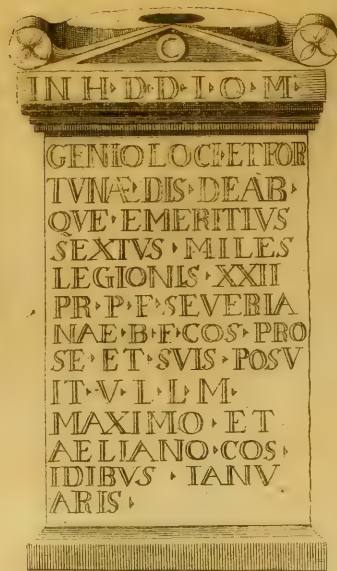 IN H·D·D·I·O·M·
GENIO LOCI·ET FOR
TVNÆ·DIS·DEAB·
QVE·EMERITIVS
SEXTVS·MILES
LEGIONIS·XXII
PR·P·F·SEVERIA
NAE·B·F·COS·PRO
SE·ET·SVIS·POSV
IT·V·L·L·M·
MAXIMO·ET
AELIANO·COS·
IDIBVS·IANV
ARIS·